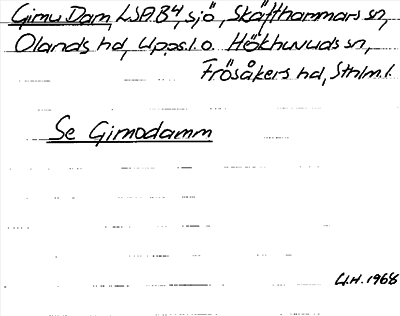 Gimu Dam, LSA.B4, sjö, Skäfthammars sn,
Olands hd, Upps.l. o. Hökhuvuds sn,
Frösåkers hd, Sthlm.l.
Se Gimodamm
U.H. 1968